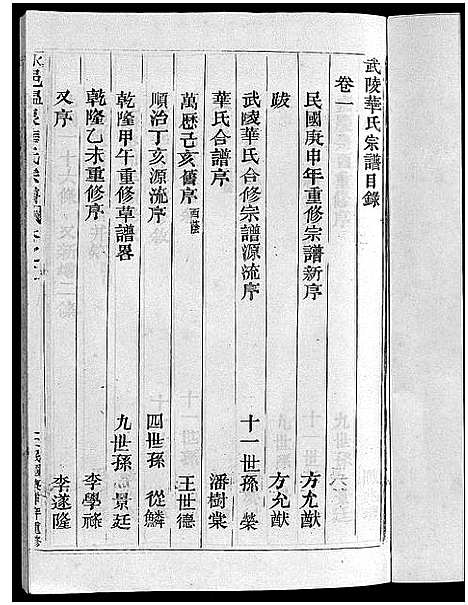 武陵華氏宗譜目錄
卷一
民國庚申年重修宗譜新序 方允猷
跋 方允猷
武陵華氏合修宗譜源流序 十一世孫 榮
華氏合譜序 潘樹棠
萬歷己亥舊序 酉蔭 王世德
順治丁亥源流序 十四世孫 從鱗
乾隆甲午重修草譜畧 九世孫 景廷
乾隆乙未重修序 李學祿
又序 李遂隆
民國庚申年重修